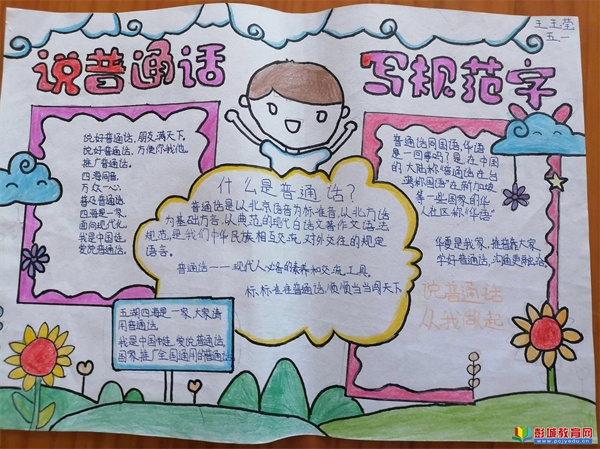 王玉莹
五一
说普通话
写规范字
说好普通话,朋友满天下。
说好普通话,方便你我他。
推广普通话,
四海同音,
万众一心,
普及普通话,
四海是一家。
面向现代化。
我是中国娃,
爱说普通话。
什么是普通话?
普通话是以北京语音为标准音,以北方话
为基础方言,以典范的现代白话文著作文语法
规范,是我们中华民族相互交流,对外交往的规定
语言。
普通话——现代人必备的素养和交流工具。
标,标也在普通话,顺顺当当闯天下
普通话同国语,华语
是一回事吗?是,在中国
的大陆称"普通话在台
湾称国语"在新加坡
等一些国家的华
人社区称"华语"
华夏是我家,推普靠大家。
学好普通话,沟通更融洽。
说普通话
从我做起
五湖四海是一家,大家请
用普通话
我是中国娃,爱说普通话。
国家,推广全国通用的普通话,
彭城教育网
www.pcjyedu.cn